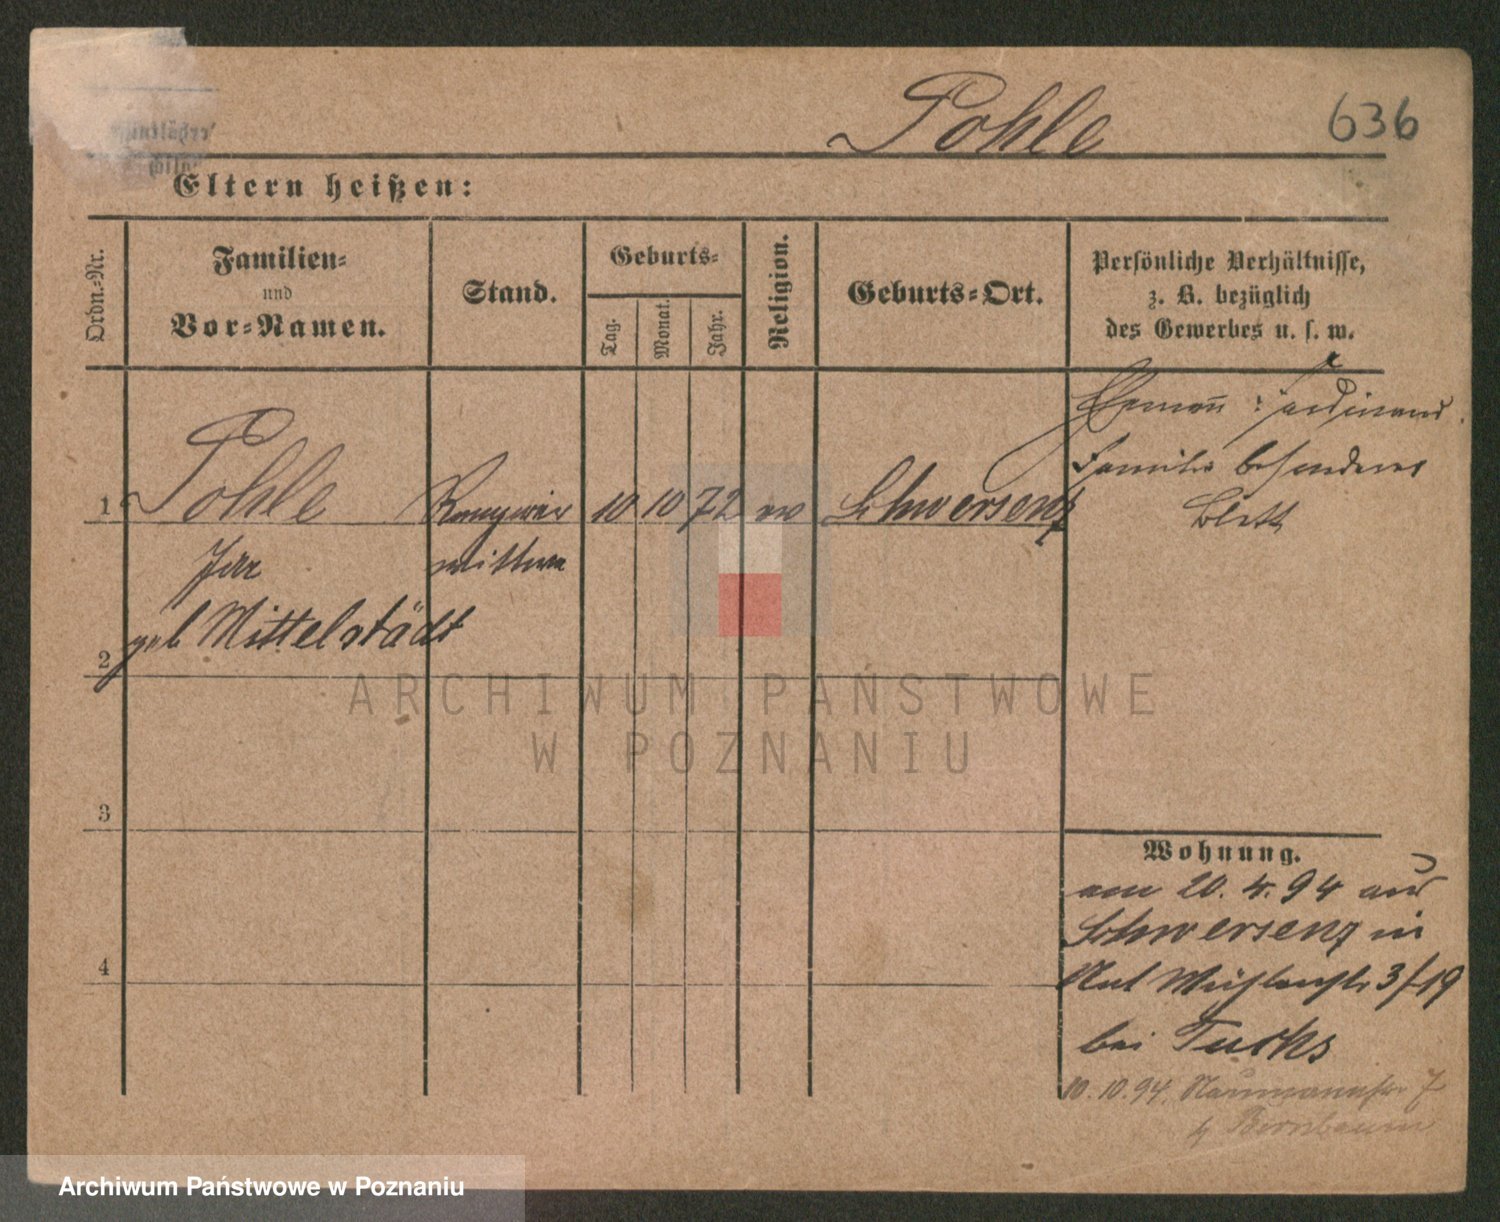 Pohle
636
Eltern heißen:
Ordn.-Nr.
Familien-
und
Vor-Namen.
Stand.
Geburts-
Tag.
Monat.
Jahr.
Religion.
Geburts-Ort.
Persönliche Verhältnisse,
z. B. bezüglich
des Gewerbes u. s. w.
Ehemann: Ferdinand
Familie besonderes
Blatt
1 Pohle 10 10 72 ev Schwersenz
Ida wittwe
2 geb Mittelstädt
3
4
Wohnung.
am 20. 4. 94 aus
Schwersenz in
3/19
bei Fuchs
10.10.94. Naumannstr 7
b Birnbaum
ARCHIWUM PAŃSTWOWE
W POZNANIU
Archiwum Państwowe w Poznaniu